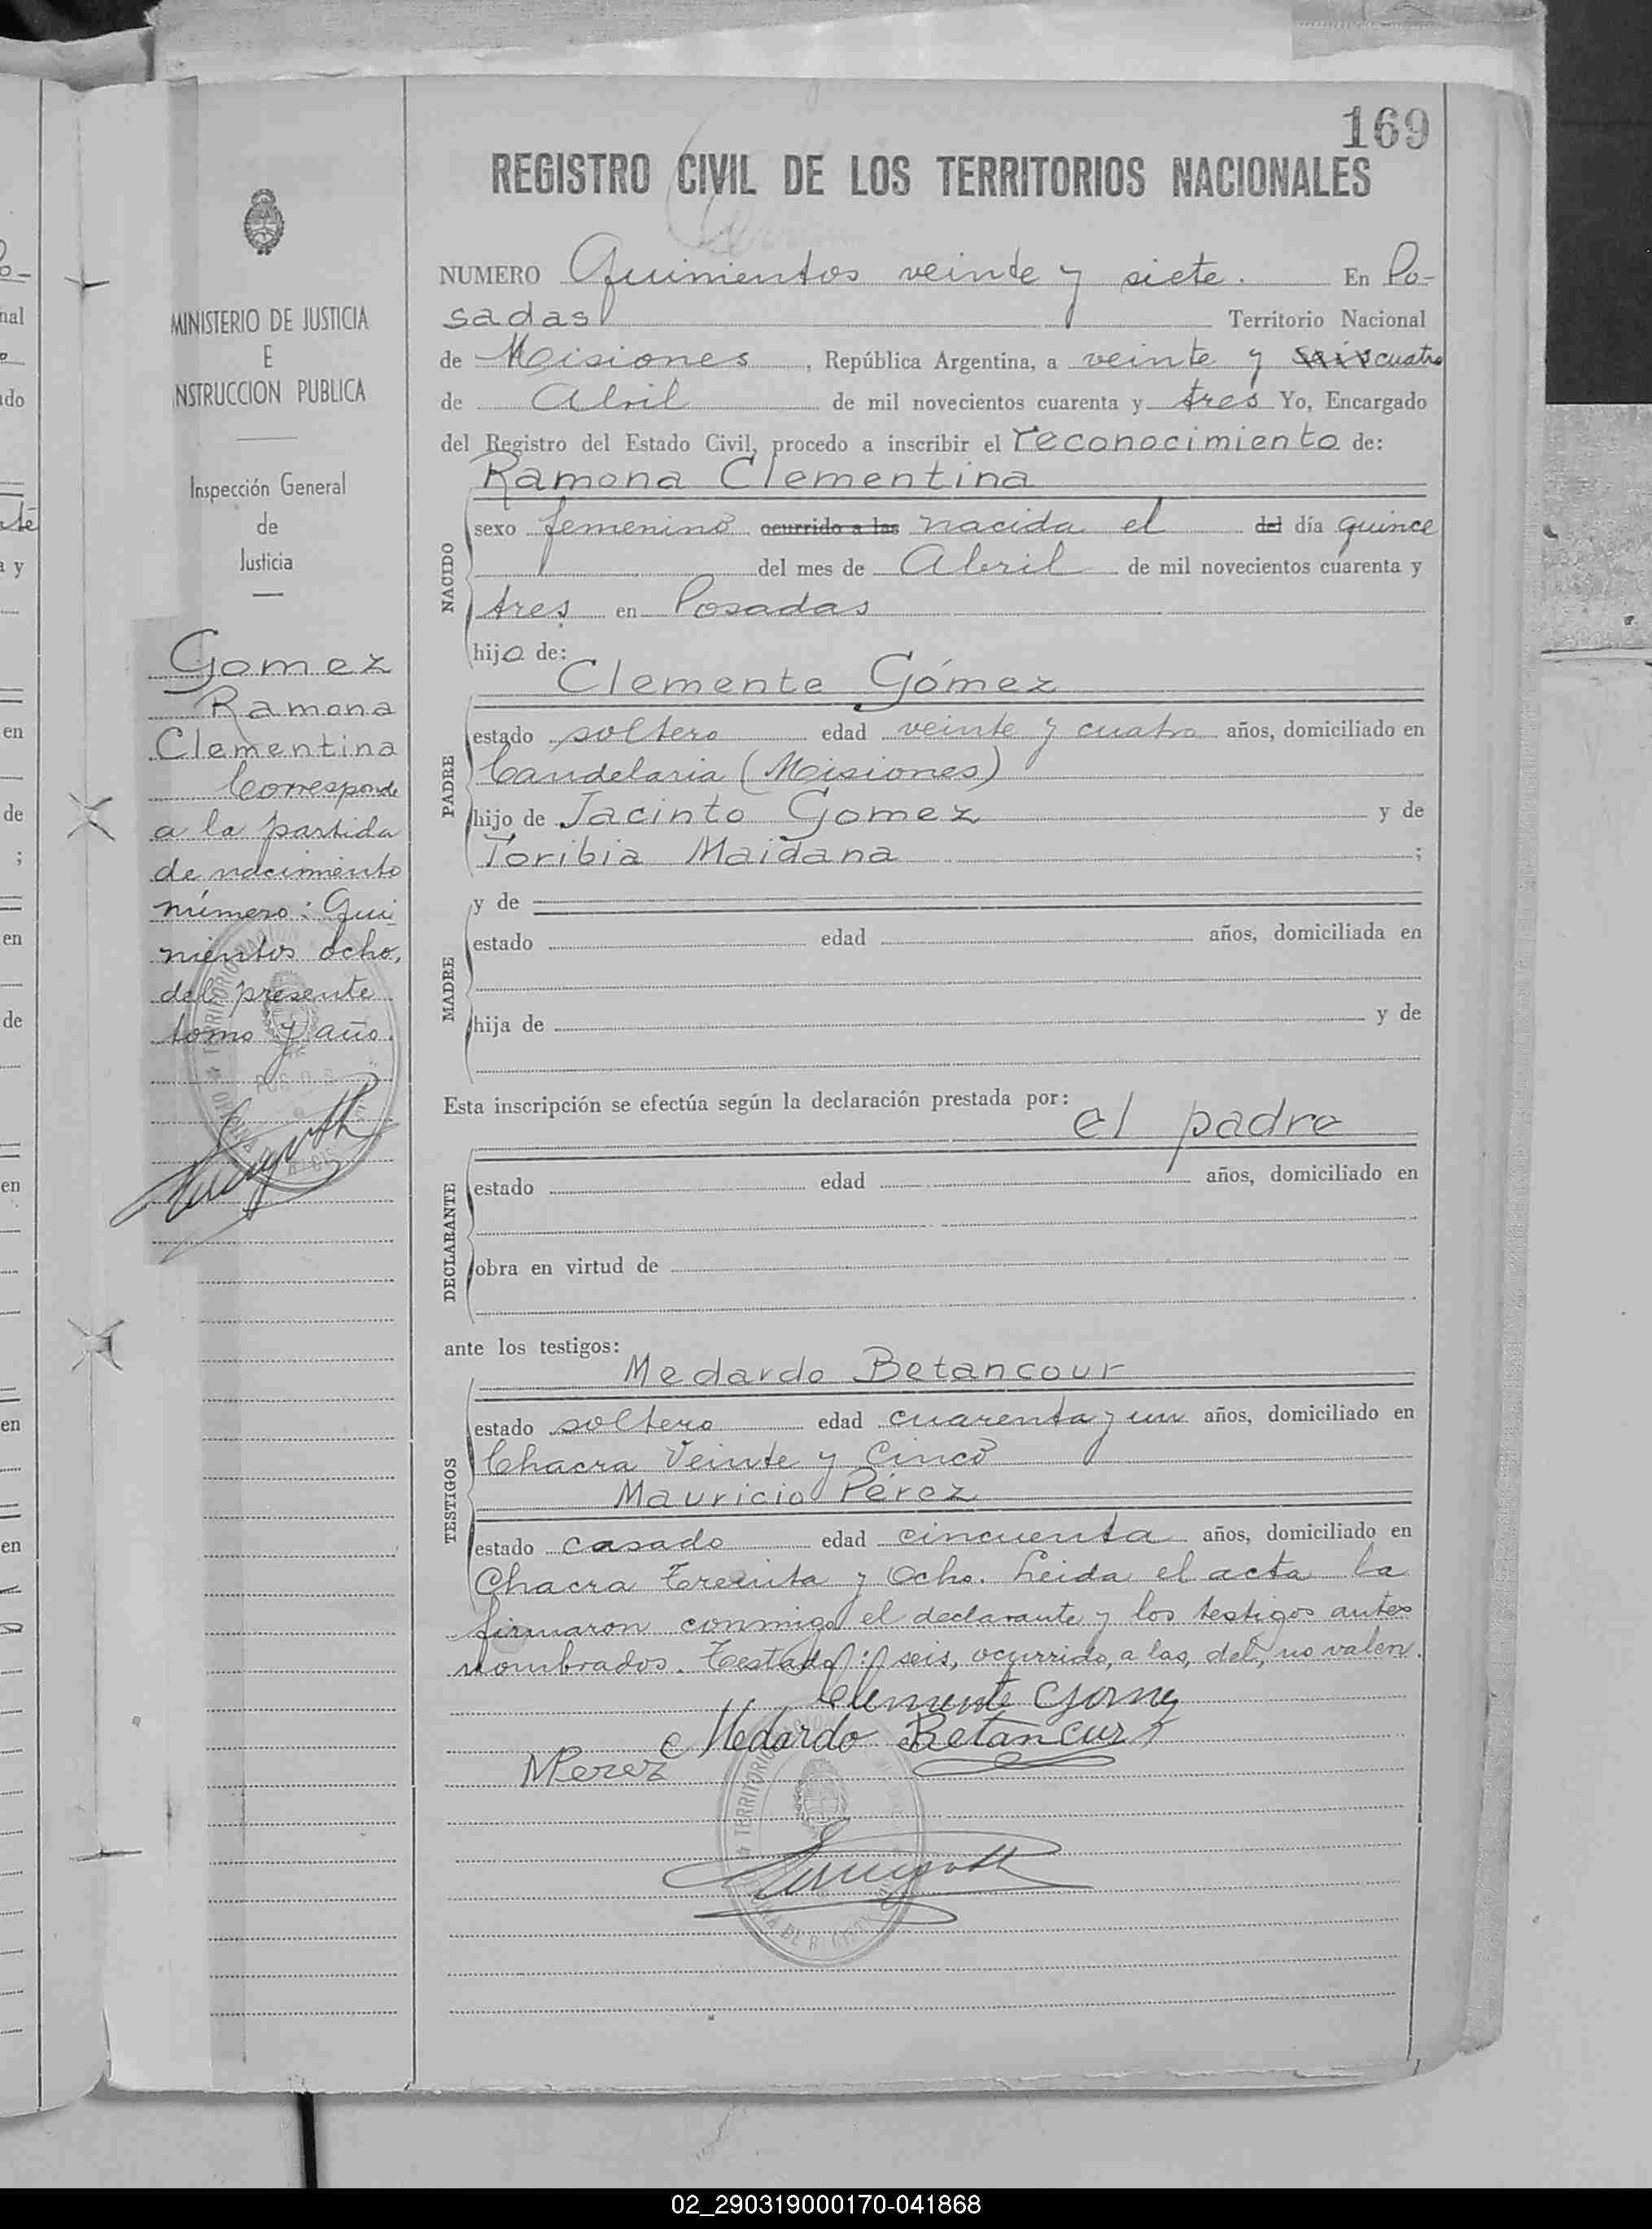 169
REGISTRO CIVIL DE LOS TERRITORIOS NACIONALES
MINISTERIO DE JUSTICIA
E
INSTRUCCION PUBLICA
Inspección General
de
Justicia
Gomez
Ramona
Clementina
Corresponde
a la partida
de nacimiento
número: Qui
nientos ocho,
del presente
tomo y año.
NUMERO Quinientos veinte y siete. En Po-
sadas Territorio Nacional
de Misiones, República Argentina, a veinte y seis cuatro
de Abril de mil novecientos cuarenta y tres Yo, Encargado
del Registro del Estado Civil, procedo a inscribir el reconocimiento de:
Ramona Clementina
NACIDO
sexo femenino ocurrido a las nacida el del día quince
del mes de Abril de mil novecientos cuarenta y
tres en Posadas
hija de:
Clemente Gómez
PADRE
estado soltero edad veinte y cuatro años, domiciliado en
Candelaria (Misiones)
hijo de Jacinto Gomez y de
Toribia Maidana ;
MADRE
y de
estado edad años, domiciliada en
hija de y de
Esta inscripción se efectúa según la declaración prestada por:
el padre
DECLARANTE
estado edad años, domiciliado en
obra en virtud de
ante los testigos:
Medardo Betancour
TESTIGOS
estado soltero edad cuarenta y un años, domiciliado en
Chacra Veinte y Cinco
Mauricio Pérez
estado casado edad cincuenta años, domiciliado en
Chacra Treinta y Ocho. Leida el acta la
firmaron conmigo el declarante y los testigos antes
nombrados. Testado: seis, ocurrido, a las, del, no valen.
Clemente Gomez
Medardo Betancur
MPerez
02_290319000170-041868